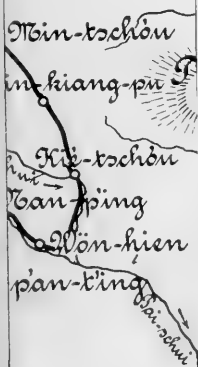 Min-tschóu
in-kiang-pu
Kié-tschóu
hui
Nan-p'ing
Wön-hien
p'an-t'ing
Pai-schui